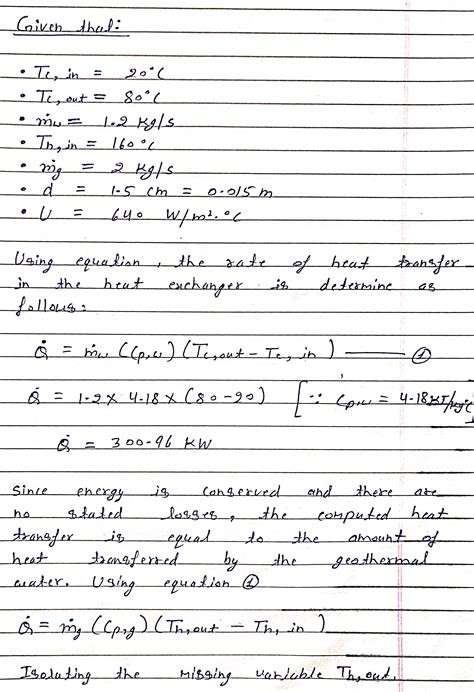 Given that:
• Tc, in = 20°C
• Tc, out = 80°C
• ṁw = 1.2 Kg/s
• Th, in = 160°C
• ṁg = 2 Kg/s
• d = 1.5 cm = 0.015 m
• U = 640 W/m².°C
Using equation, the rate of heat transfer
in the heat exchanger is determine as
follows:
Q̇ = ṁw (Cp,w) (Tc,out - Tc, in) —— ①
Q̇ = 1.2 × 4.18 × (80-20) [∵ Cp,w = 4.18 KJ/kg°C]
Q̇ = 300.96 KW
Since energy is conserved and there are
no stated losses, the computed heat
transfer is equal to the amount of
heat transferred by the geothermal
water. Using equation ①
Q̇ = ṁg (Cp,g) (Th,out - Th, in)
Isolating the missing variable Th,out.